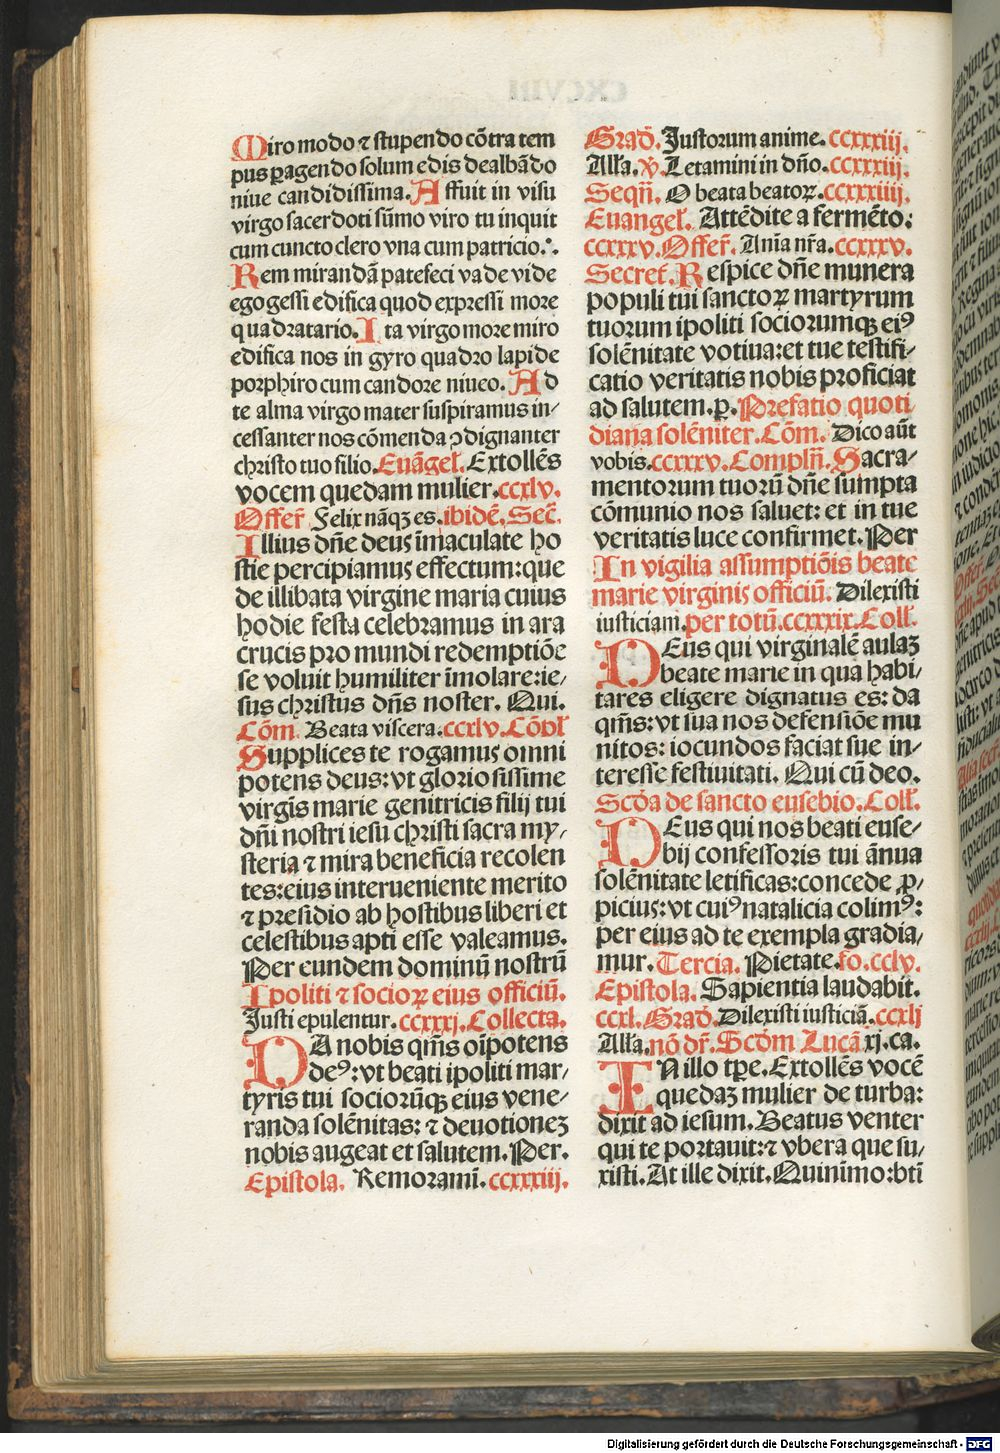 Miro modo ⁊ stupendo cõtra tem
pus ꝑagendo solum edis dealbãdo
niue candidissima. Affuit in visu
virgo sacerdoti sũmo viro tu inquit
cum cuncto clero vna cum patricio.
Rem mirandã patefeci vade vide
ego gessi edifica quod expressi more
quadratario. Ita virgo more miro
edifica nos in gyro quadro lapide
porphiro cum candore niueo. Ad
te alma virgo mater suspiramus in⸗
cessanter nos cõmenda ꝯdignanter
christo tuo filio. Euãgeł. Extollẽs
vocem quedam mulier. ccxlv.
Offer̃ Felix nãqꝫ es. ibidẽ. Sec̃.
Illius dñe deus ĩmaculate ho
stie percipiamus effectum: que
de illibata virgine maria cuius
hodie festa celebramus in ara
crucis pro mundi redemptiõe
se voluit humiliter ĩmolare: ie⸗
sus christus dñs noster. Qui.
Cõm. Beata viscera. ccxlv. Cõpł
Supplices te rogamus omni
potens deus: vt gloriosissime
virgĩs marie genitricis filij tui
dñi nostri iesu christi sacra my⸗
steria ⁊ mira beneficia recolen
tes: eius interueniente merito
⁊ presidio ab hostibus liberi et
celestibus apti esse valeamus.
Per eundem dominũ nostrũ
Ipoliti ⁊ socioꝝ eius officiũ.
Justi epulentur. ccxxxj. Collecta.
DA nobis qm̃s oĩpotens
deꝰ: vt beati ipoliti mar⸗
tyris tui sociorũqꝫ eius vene⸗
randa solẽnitas: ⁊ deuotioneꝫ
nobis augeat et salutem. Per.
Epistola. Remoramĩ. ccxxxiij.
Grad̃. Justorum anime. ccxxxiij.
Alła. ꝟ. Letamini in dño. ccxxxiij.
Seqñ. O beata beatoꝝ. ccxxxiiij.
Euangeł. Attẽdite a fermẽto:
ccxxxv. Offer̃. Anĩa nr̃a. ccxxxv.
Secret̃. Respice dñe munera
populi tui sanctoꝝ martyrum
tuorum ipoliti sociorumqꝫ eiꝰ
solẽnitate votiua: et tue testifi⸗
catio veritatis nobis proficiat
ad salutem. ꝑ. Prefatio quoti
diana solẽniter. Cõm. Dico aũt
vobis. ccxxxv. Complñ. Sacra⸗
mentorum tuorũ dñe sumpta
cõmunio nos saluet: et in tue
veritatis luce confirmet. Per
In vigilia assumptiõis beate
marie virginis officiũ. Dilexisti
iusticiam. per totũ. ccxxxix. Coll̃.
DEus qui virginalẽ aulaꝫ
beate marie in qua habi⸗
tares eligere dignatus es: da
qm̃s: vt sua nos defensiõe mu
nitos: iocundos faciat sue in⸗
teresse festiuitati. Qui cũ deo.
Scd̃a de sancto eusebio. Coll̃.
DEus qui nos beati euse⸗
bij confessoris tui ãnua
solẽnitate letificas: concede ꝓ⸗
picius: vt cuiꝰ natalicia colimꝰ:
per eius ad te exempla gradia⸗
mur. Tercia. Pietate. fo. cclv.
Epistola. Sapientia laudabit.
ccxl. Grad̃. Dilexisti iusticiã. ccxlj
Alła. nõ dr̃. Scd̃m Lucã xj. ca.
IN illo tp̃e. Extollẽs vocẽ
quedaꝫ mulier de turba:
dixit ad iesum. Beatus venter
qui te portauit: ⁊ vbera que su⸗
xisti. At ille dixit. Quinĩmo: bt̃i
Digitalisierung gefördert durch die Deutsche Forschungsgemeinschaft - DFG